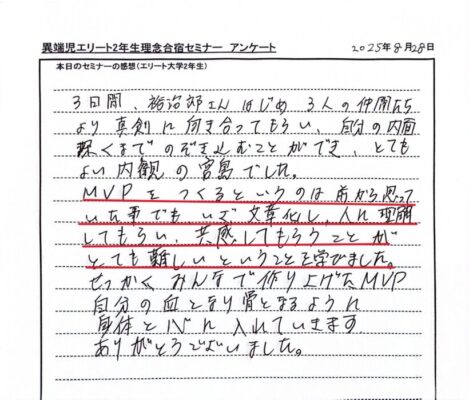 異端児エリート2年生理念合宿セミナー　アンケート
2025年8月28日
本日のセミナーの感想(エリート大学2年生)
3日間、裕治郎さんはじめ 3人の仲間たち
より真剣に向き合ってもらい、自分の内面
深くまでのぞき込むことができ、とても
よい内観の宮島でした。
MVPをつくるというのは前から思って
いた事でも いざ 文章化し、人に理解
してもらい、共感してもらうことが
とても難しいということを学びました。
せっかくみんなで作り上げたMVP
自分の血となり骨となるように
身体と心に入れていきます
ありがとうございました。